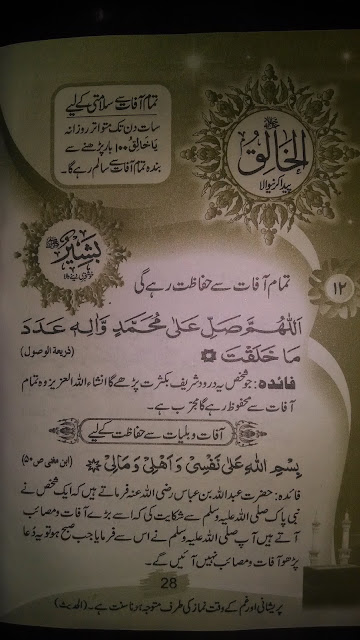 تمام آفات سے سلامتی کے لیے
سات دن تک متواتر روزانہ
یَا خَالِقُ ۱۰۰ بار پڑھنے سے
بندہ تمام آفات سے سالم رہے گا۔
الخالق
جل جلالہ
پیدا کرنیوالا
بشیر
ﷺ
تمام آفات سے حفاظت رہے گی
۱۲
اَللّٰهُمَّ صَلِّ عَلٰی مُحَمَّدٍ وَّاٰلِهٖ عَدَدَ
مَا خَلَقْتَ (ذریعۃ الوصول)
فائدہ: جو شخص یہ درود شریف بکثرت پڑھے گا انشاء اللہ العزیز وہ تمام
آفات سے محفوظ رہے گا مجرّب ہے۔
آفات و بلیات سے حفاظت کے لیے
بِسْمِ اللّٰهِ عَلٰی نَفْسِیْ وَ اَهْلِیْ وَ مَالِیْ (ابن سنی ص ۵۰)
فائدہ: حضرت عبداللہ بن عباس رضی اللہ عنہ فرماتے ہیں کہ ایک شخص نے
نبی پاک صلی اللہ علیہ وسلم سے شکایت کی کہ اسے بڑے آفات و مصائب
آتے ہیں آپ صلی اللہ علیہ وسلم نے اس سے فرمایا جب صبح ہو تو یہ دُعا
پڑھو آفات و مصائب نہیں آئیں گے۔
28
پریشانی اور غم کے وقت نماز کی طرف متوجہ ہونا سنت ہے۔ (الحدیث)